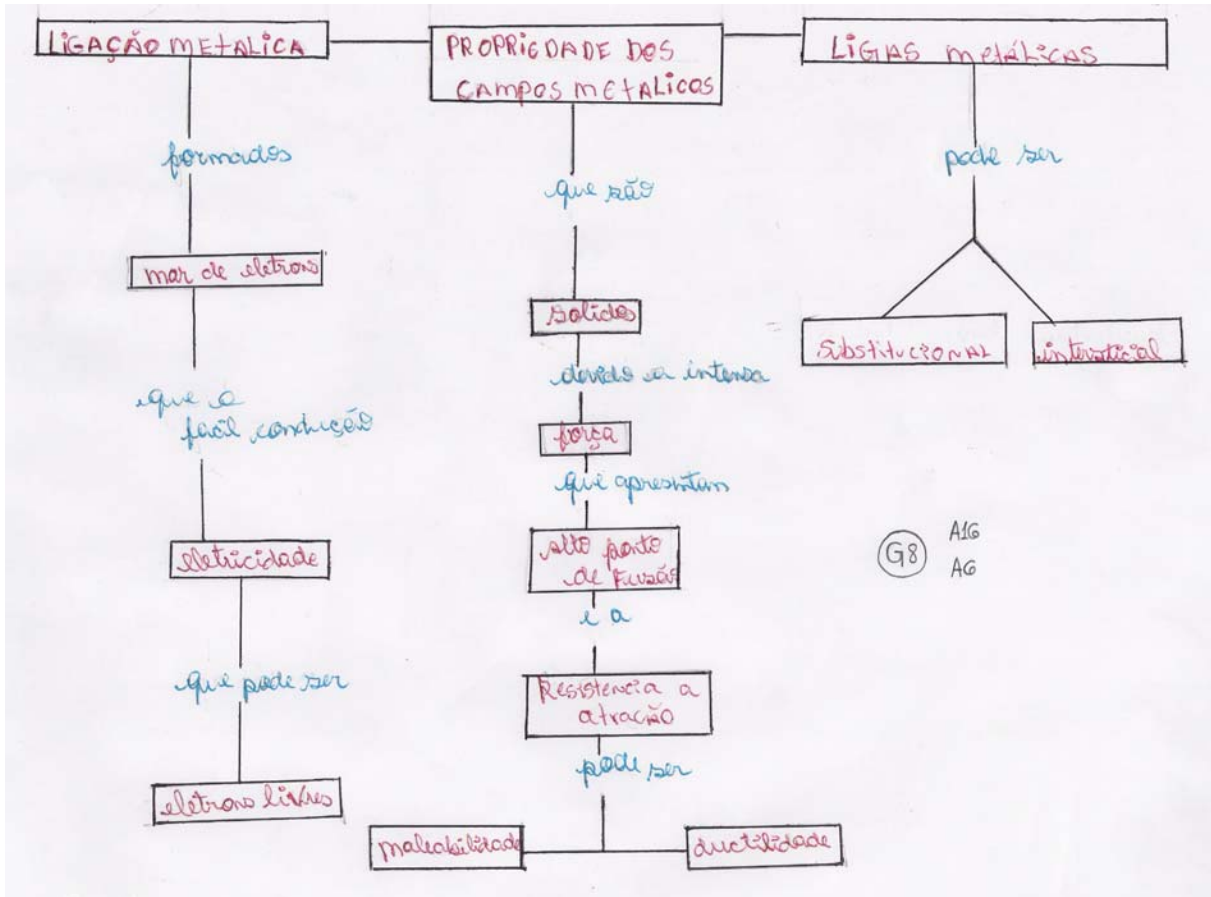 LIGAÇÃO METALICA
formados
mar de eletrons
que a
facil condução
eletricidade
que pode ser
eletrons livres
PROPRIEDADE DOS
CAMPOS METALICOS
que são
solidos
devido a intensa
força
que apresentam
alto ponto
de Fusão
e a
Resistencia a
atração
pode ser
maleabilidade
ductilidade
LIGAS METÁLICAS
pode ser
SUBSTITUCIONAL
intersticial
G8
A16
A6